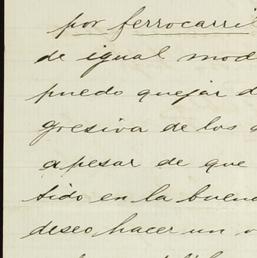 por ferrocarril
de igual mod
puedo quejar d
gresiva de los
apesar de que
tido en la buena
deseo hacer un